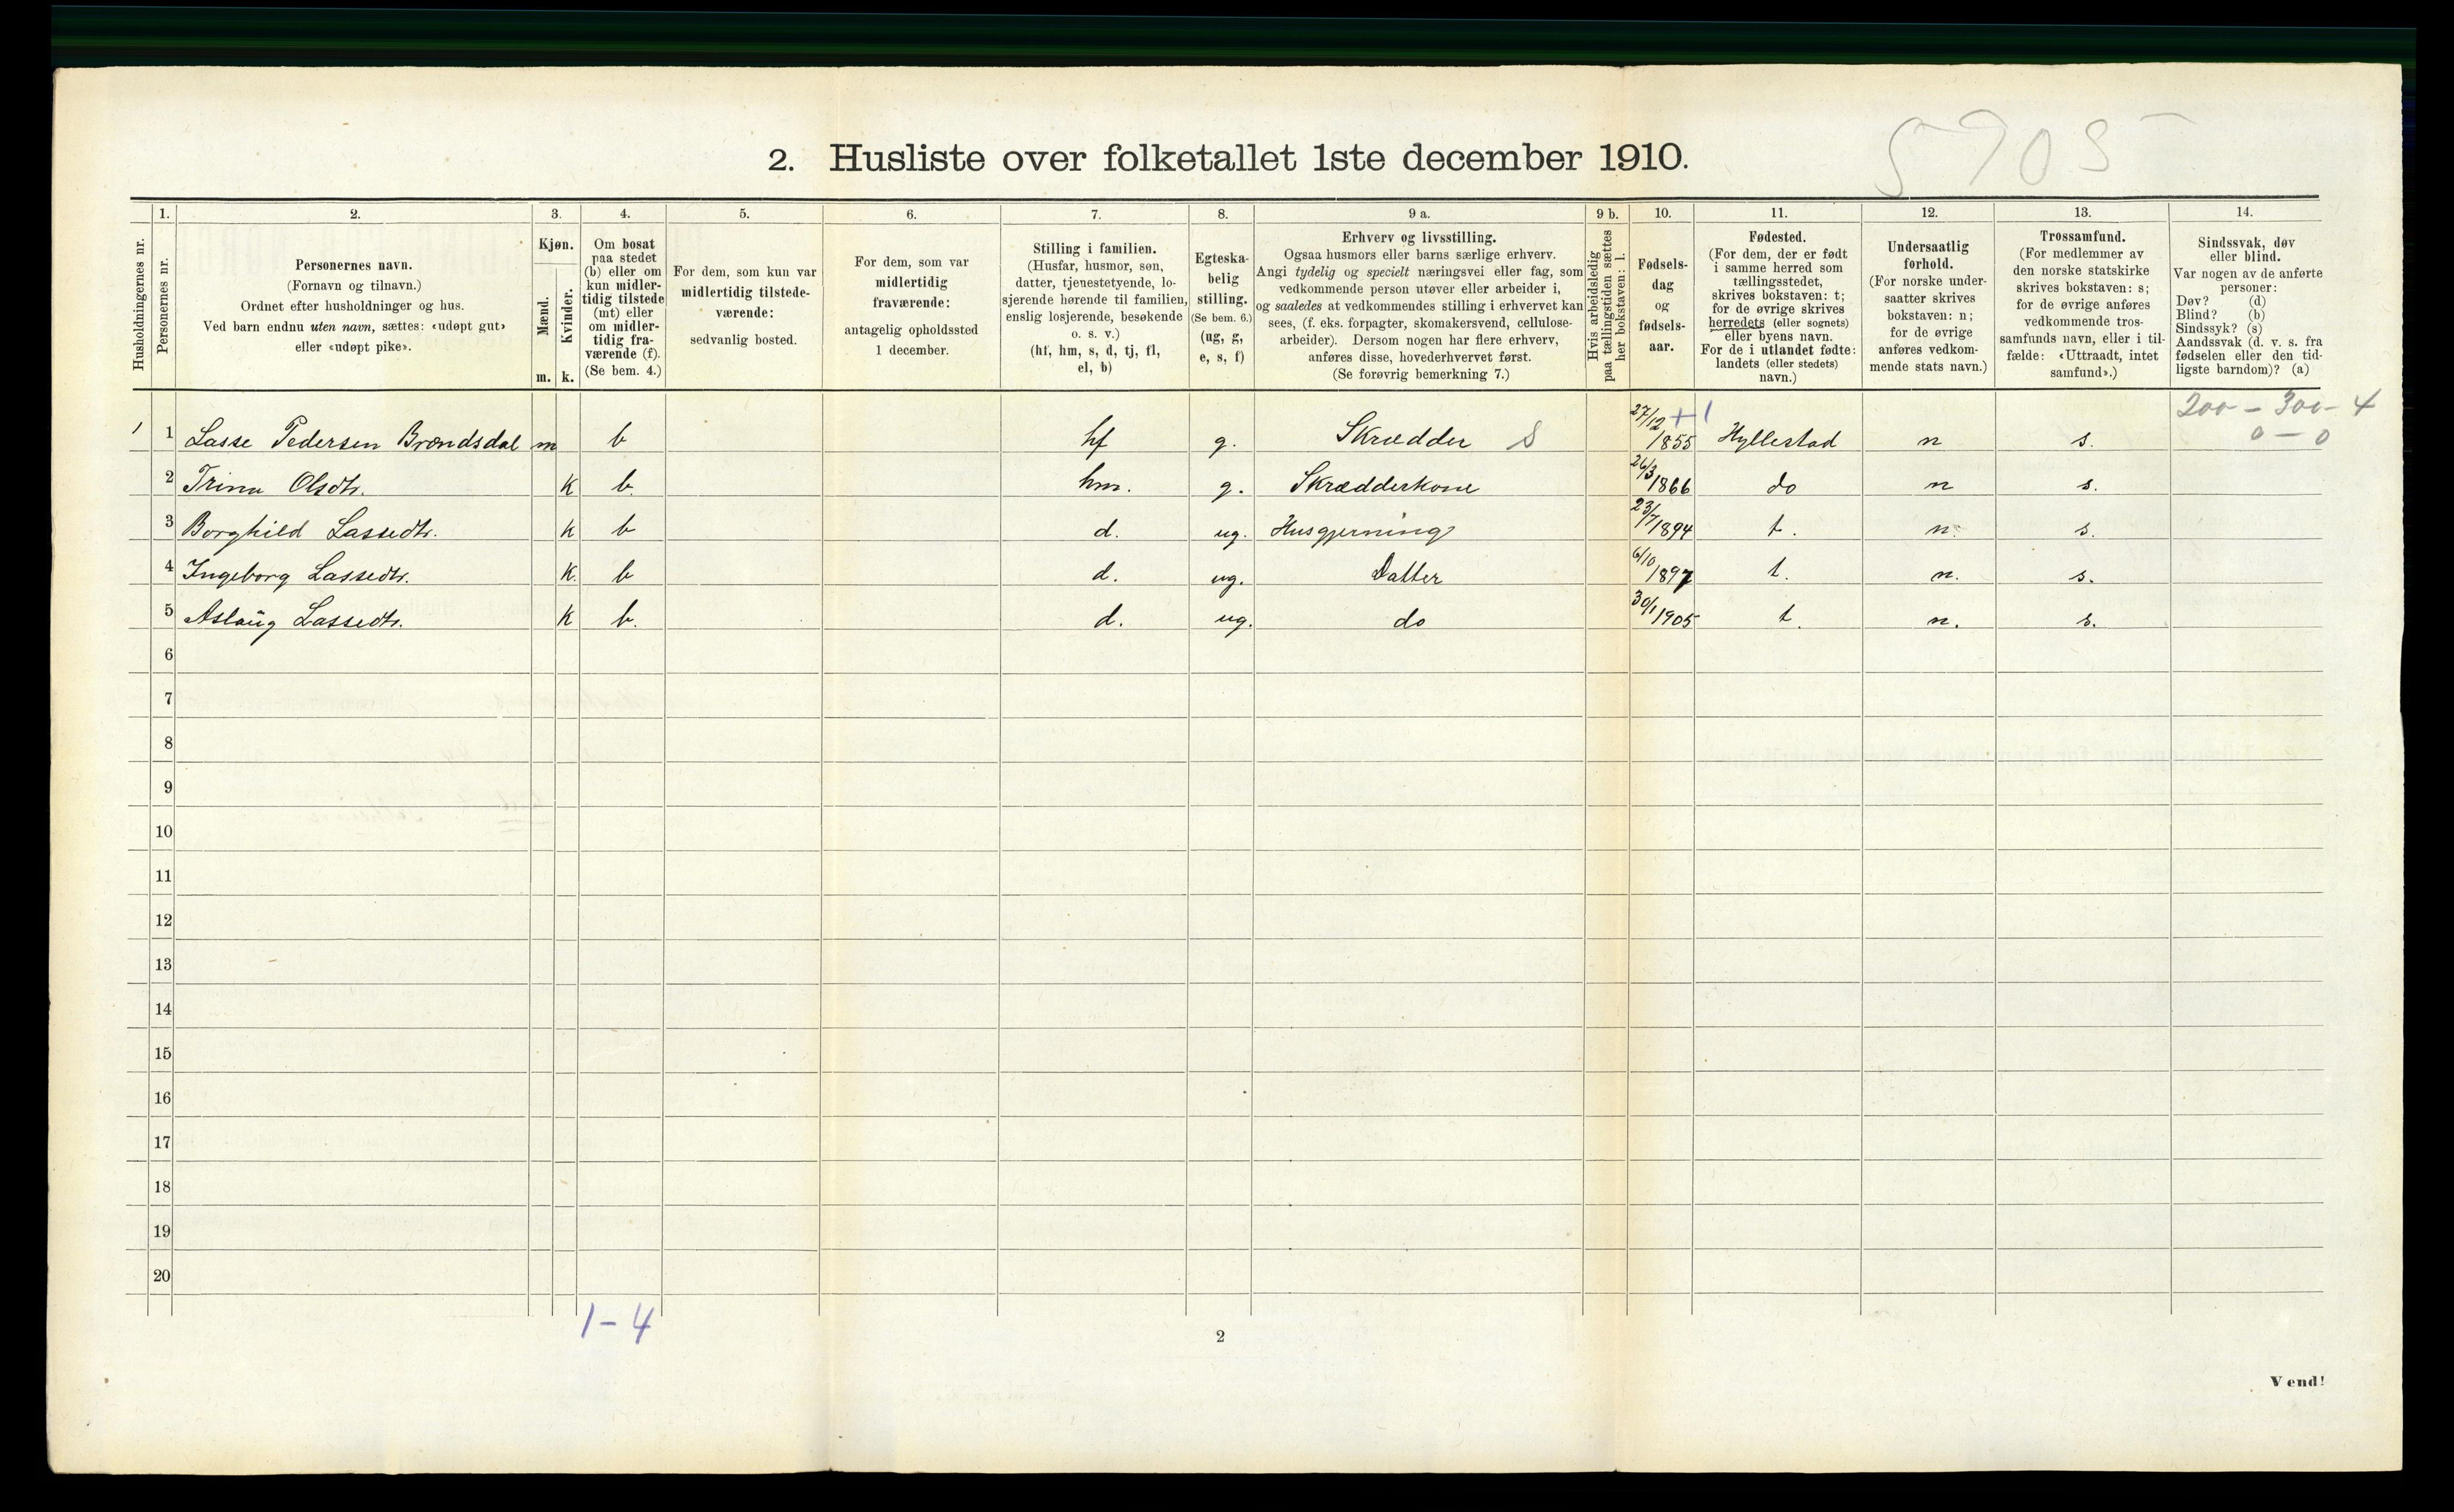 5705
2. Husliste over folketallet 1ste december 1910.
Husholdningernes nr.
1.
Personernes nr.
2.
Personernes navn.
(Fornavn og tilnavn.)
Ordnet efter husholdninger og hus.
Ved barn endnu uten navn, sættes: «udøpt gut»
eller «udøpt pike».
3.
Kjøn.
Mænd.
Kvinder.
m. k.
4.
Om bosat
paa stedet
(b) eller om
kun midler-
tidig tilstede
(mt) eller
om midler-
tidig fra-
værende (f).
(Se bem. 4.)
5.
For dem, som kun var
midlertidig tilstede-
værende:
sedvanlig bosted.
6.
For dem, som var
midlertidig
fraværende:
antagelig opholdssted
1 december.
7.
Stilling i familien.
(Husfar, husmor, søn,
datter, tjenestetyende, lo-
sjerende hørende til familien,
enslig losjerende, besøkende
o. s. v.)
(hf, hm, s, d, tj, fl,
el, b)
8.
Egteska-
belig
stilling.
(Se bem. 6.)
(ug, g,
e, s, f)
9 a.
Erhverv og livsstilling.
Ogsaa husmors eller barns særlige erhverv.
Angi tydelig og specielt næringsvei eller fag, som
vedkommende person utøver eller arbeider i,
og saaledes at vedkommendes stilling i erhvervet kan
sees, (f. eks. forpagter, skomakersvend, cellulose-
arbeider). Dersom nogen har flere erhverv,
anføres disse, hovederhvervet først.
(Se forøvrig bemerkning 7.)
9 b.
Hvis arbeidsledig
paa tællingstiden sættes
her bokstaven: l.
10.
Fødsels-
dag
og
fødsels-
aar.
11.
Fødested.
(For dem, der er født
i samme herred som
tællingsstedet,
skrives bokstaven: t;
for de øvrige skrives
herredets (eller sognets)
eller byens navn.
For de i utlandet fødte:
landets (eller stedets)
navn.)
12.
Undersaatlig
forhold.
(For norske under-
saatter skrives
bokstaven: n;
for de øvrige
anføres vedkom-
mende stats navn.)
13.
Trossamfund.
(For medlemmer av
den norske statskirke
skrives bokstaven: s;
for de øvrige anføres
vedkommende tros-
samfunds navn, eller i til-
fælde: «Uttraadt, intet
samfund».)
14.
Sindssvak, døv
eller blind.
Var nogen av de anførte
personer:
Døv? (d)
Blind? (b)
Sindssyk? (s)
Aandssvak (d. v. s. fra
fødselen eller den tid-
ligste barndom)? (a)
200 - 300 - 4
0 - 0
1 1 Lasse Pedersen Brændsdal m b hf g. Skrædder S 27/12 1855 +1 Hyllestad n s.
2 Trina Olsdtr. k b hm. g. Skrædderkone 26/3 1866 do n s.
3 Borghild Lassedtr. k b d. ug. Husgjerning 23/7 1894 t. n. s.
4 Ingeborg Lassedtr. k. b d. ug. Datter 6/10 1897 t. n. s.
5 Aslaug Lassedtr. k b. d. ug. do 30/1 1905 t. n. s.
6
7
8
9
10
11
12
13
14
15
16
17
18
19
20
1-4
2
Vend!